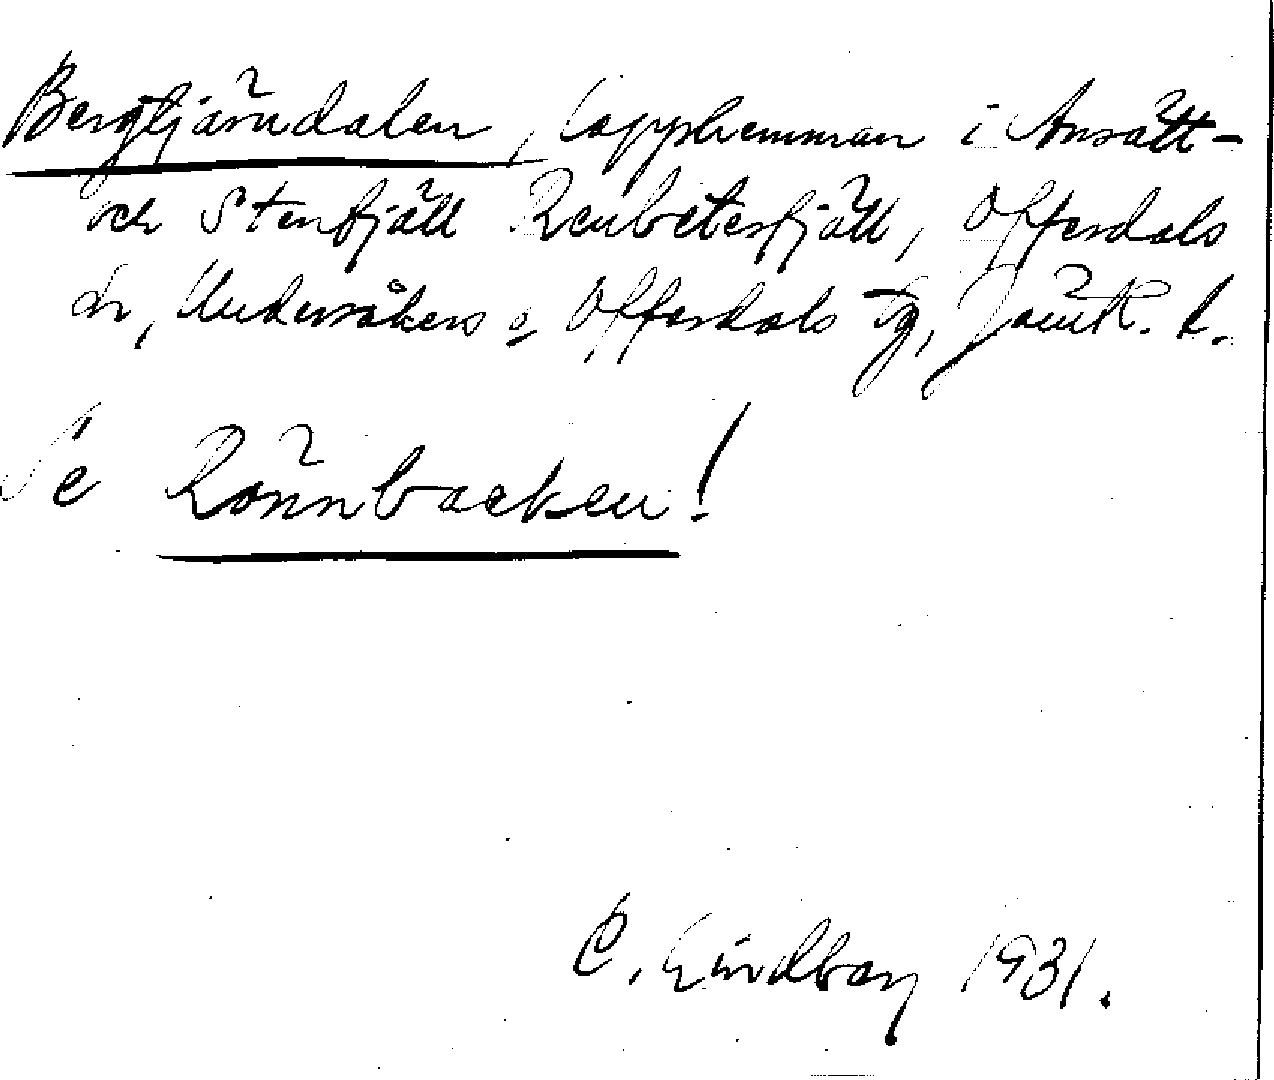 Bergtjärndalen, lappshemman i Ansätt-
och Stenfjäll Renbetesfjäll, Offerdals
sn, Undersåkers o Offerdals tg, Jämtl. l.
Se Rönnbacken!
C. Lindberg 1931.